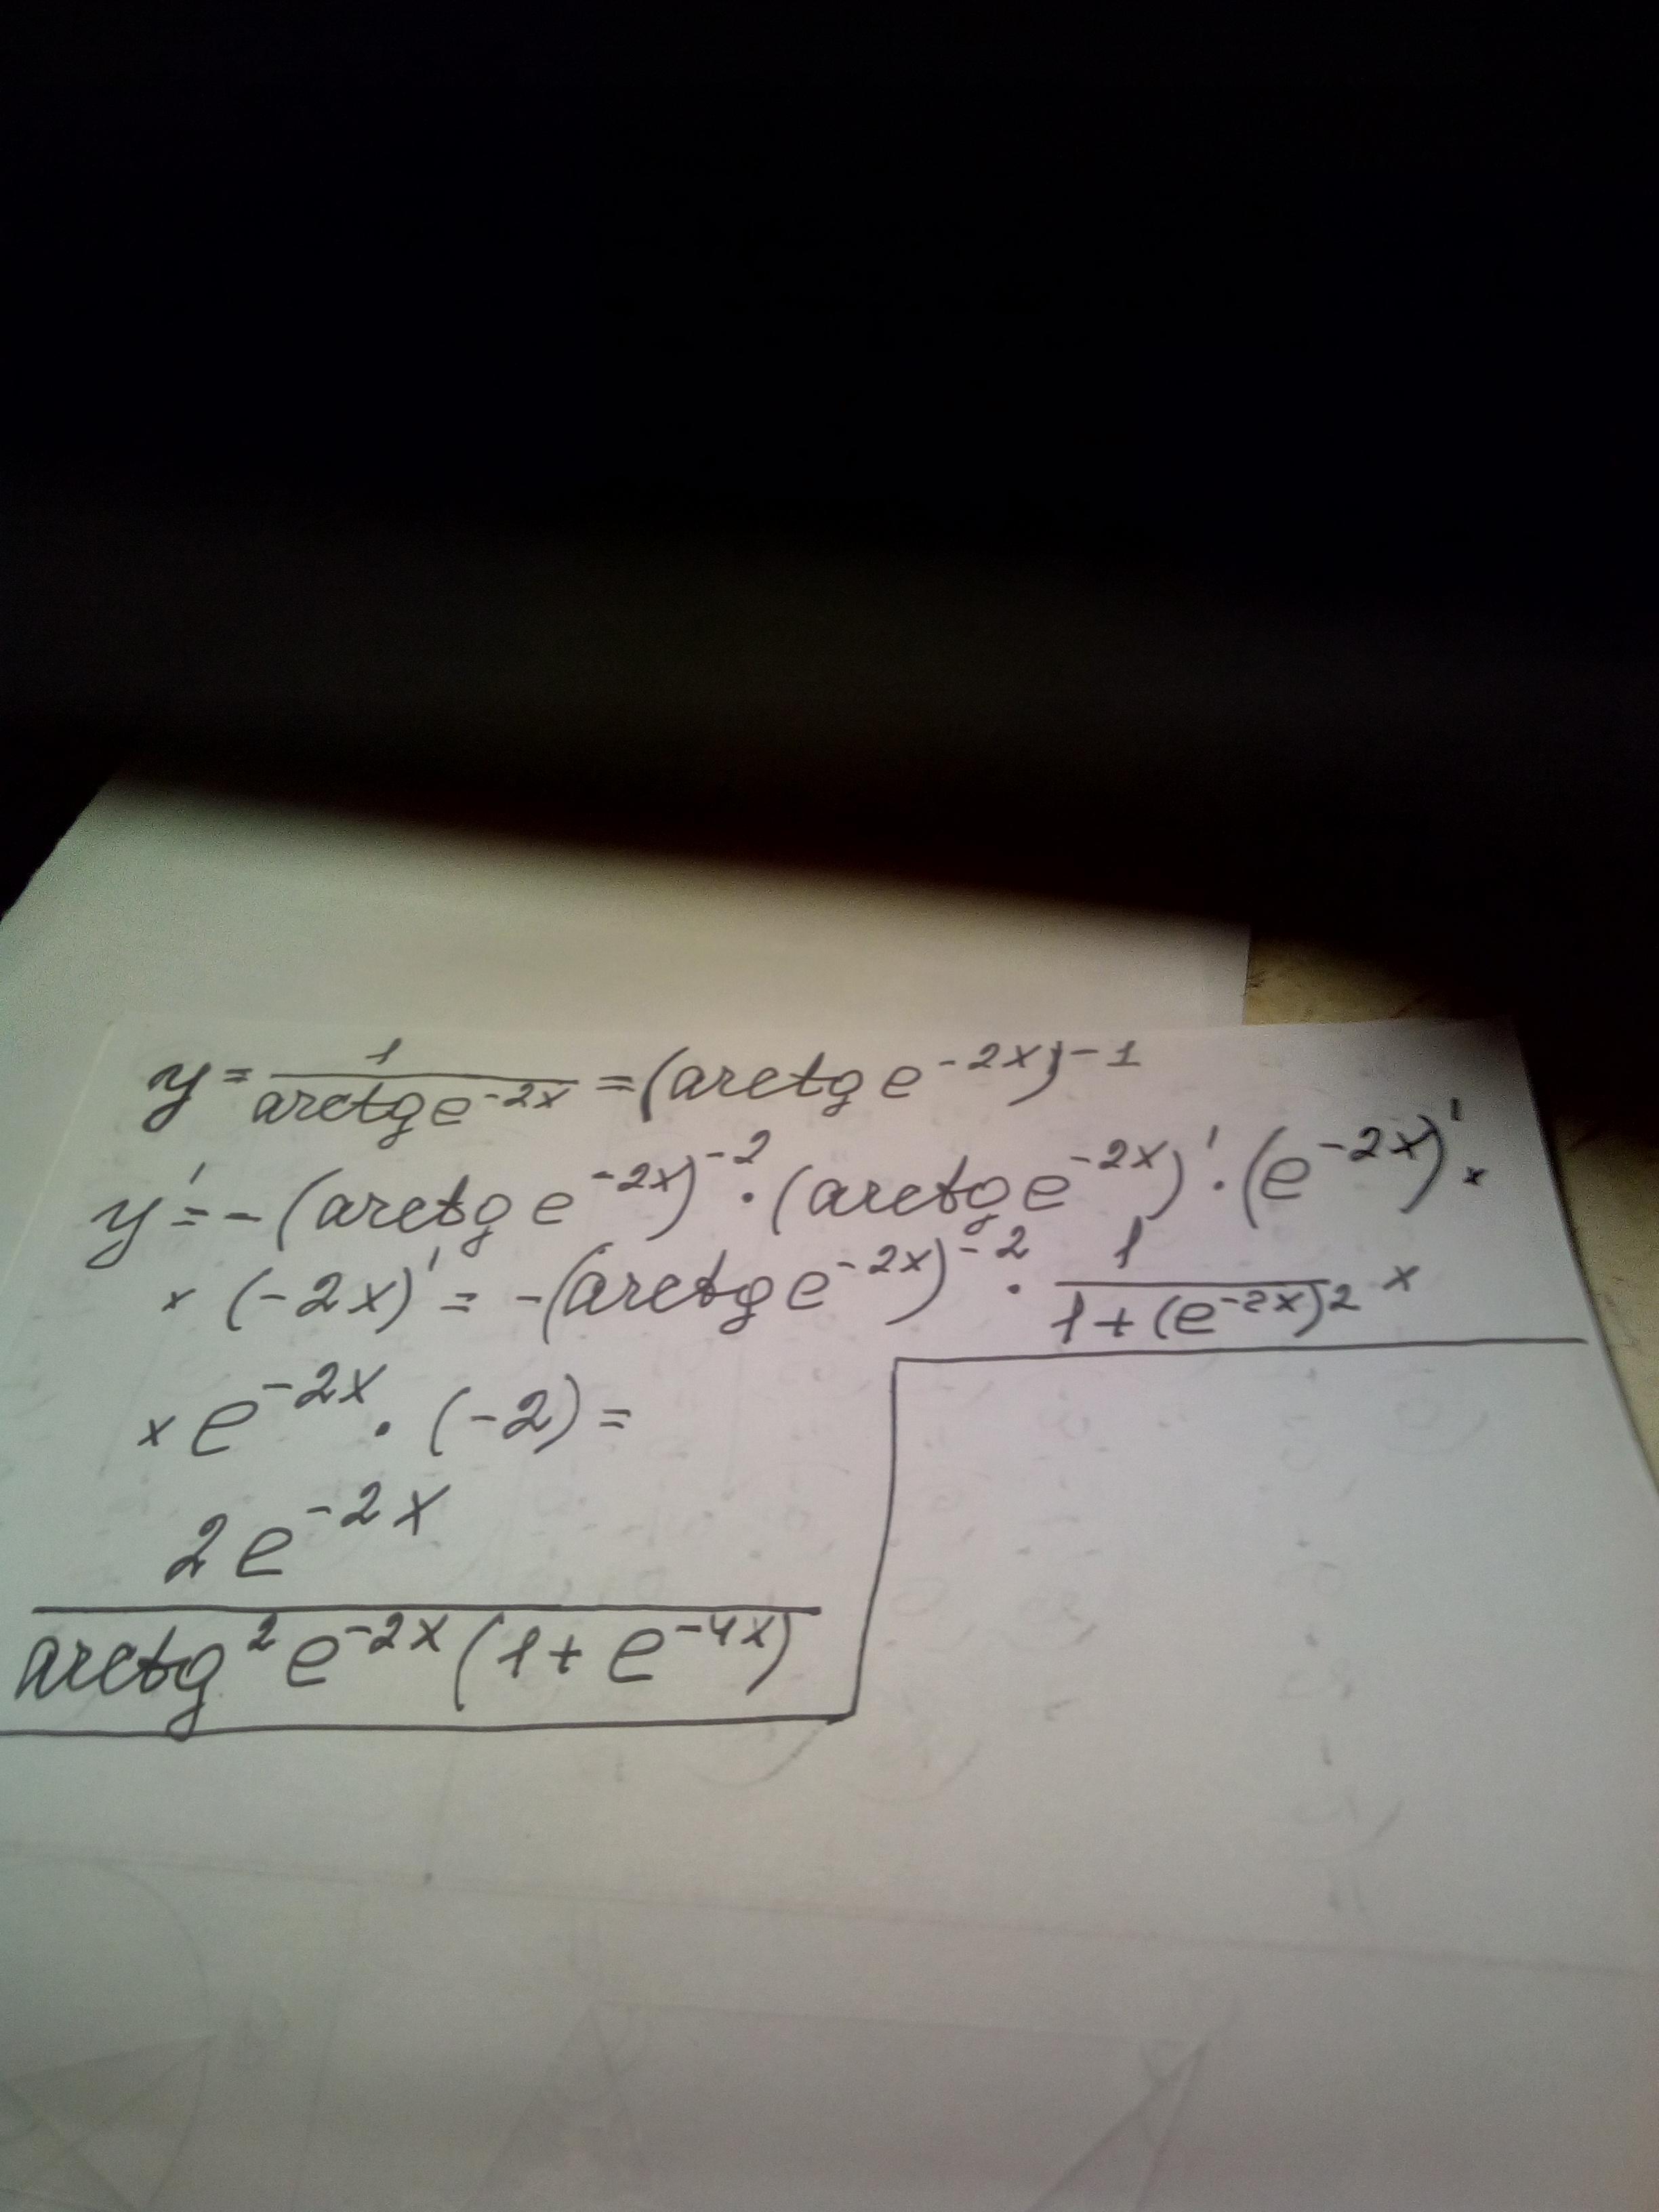 y = 1/(arctg e^(-2x)) = (arctg e^(-2x))^(-1)
y' = -(arctg e^(-2x))^(-2) · (arctg e^(-2x))' · (e^(-2x))' ×
× (-2x)' = -(arctg e^(-2x))^(-2) · 1/(1+(e^(-2x))^2) ×
× e^(-2x) · (-2) =
2e^(-2x)
arctg^2 e^(-2x) (1+e^(-4x))